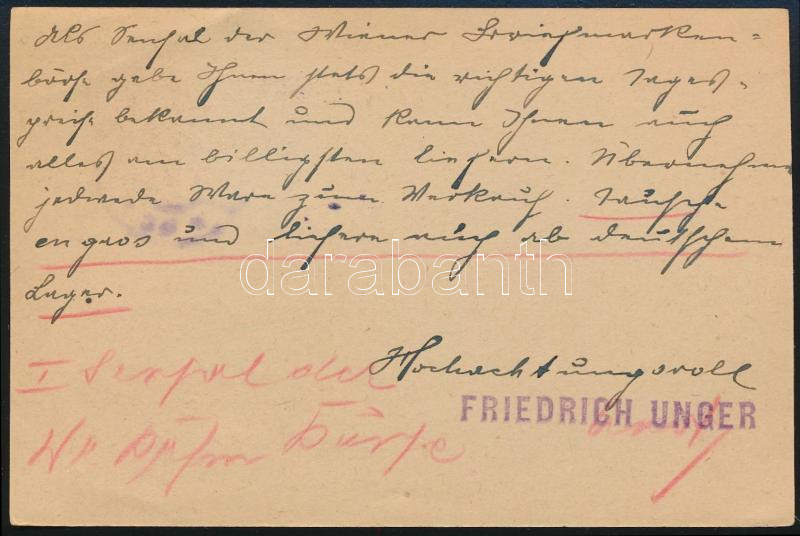 Als Sensal der Wiener Briefmarken=
börse gebe Ihnen stets die richtigen Tages-
preise bekannt und kann Ihnen auch
alles am billigsten liefern. Übernehme
jedwede Ware zum Verkauf. Tausche
en gros und liefere auch ab deutschem
Lager.
darabanth
Hochachtungsvoll
FRIEDRICH UNGER
I Sensal der
Börse